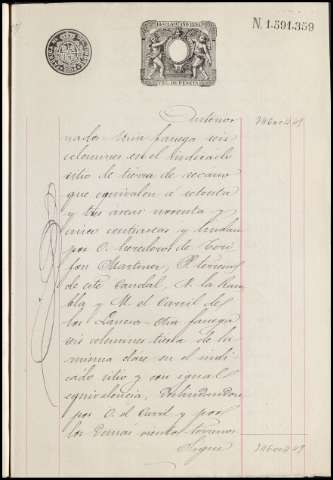 N. 1.591.359
nado. Una fanega seis
celemines en el indicado
sitio de tierra de secano
que equivalen á setenta
y tres areas noventa y
cinco centiareas y lindan
por O. herederos de
Martinez, P. terrenos
de este Caudal, N. la Ram
bla y M. el Carril del
los Otra fanega
seis celemines tierra de la
misma clase en el indi
cado sitio y con igual
equivalencia,
por O. el Carril y por
los demas vientos terrenos
Sigue